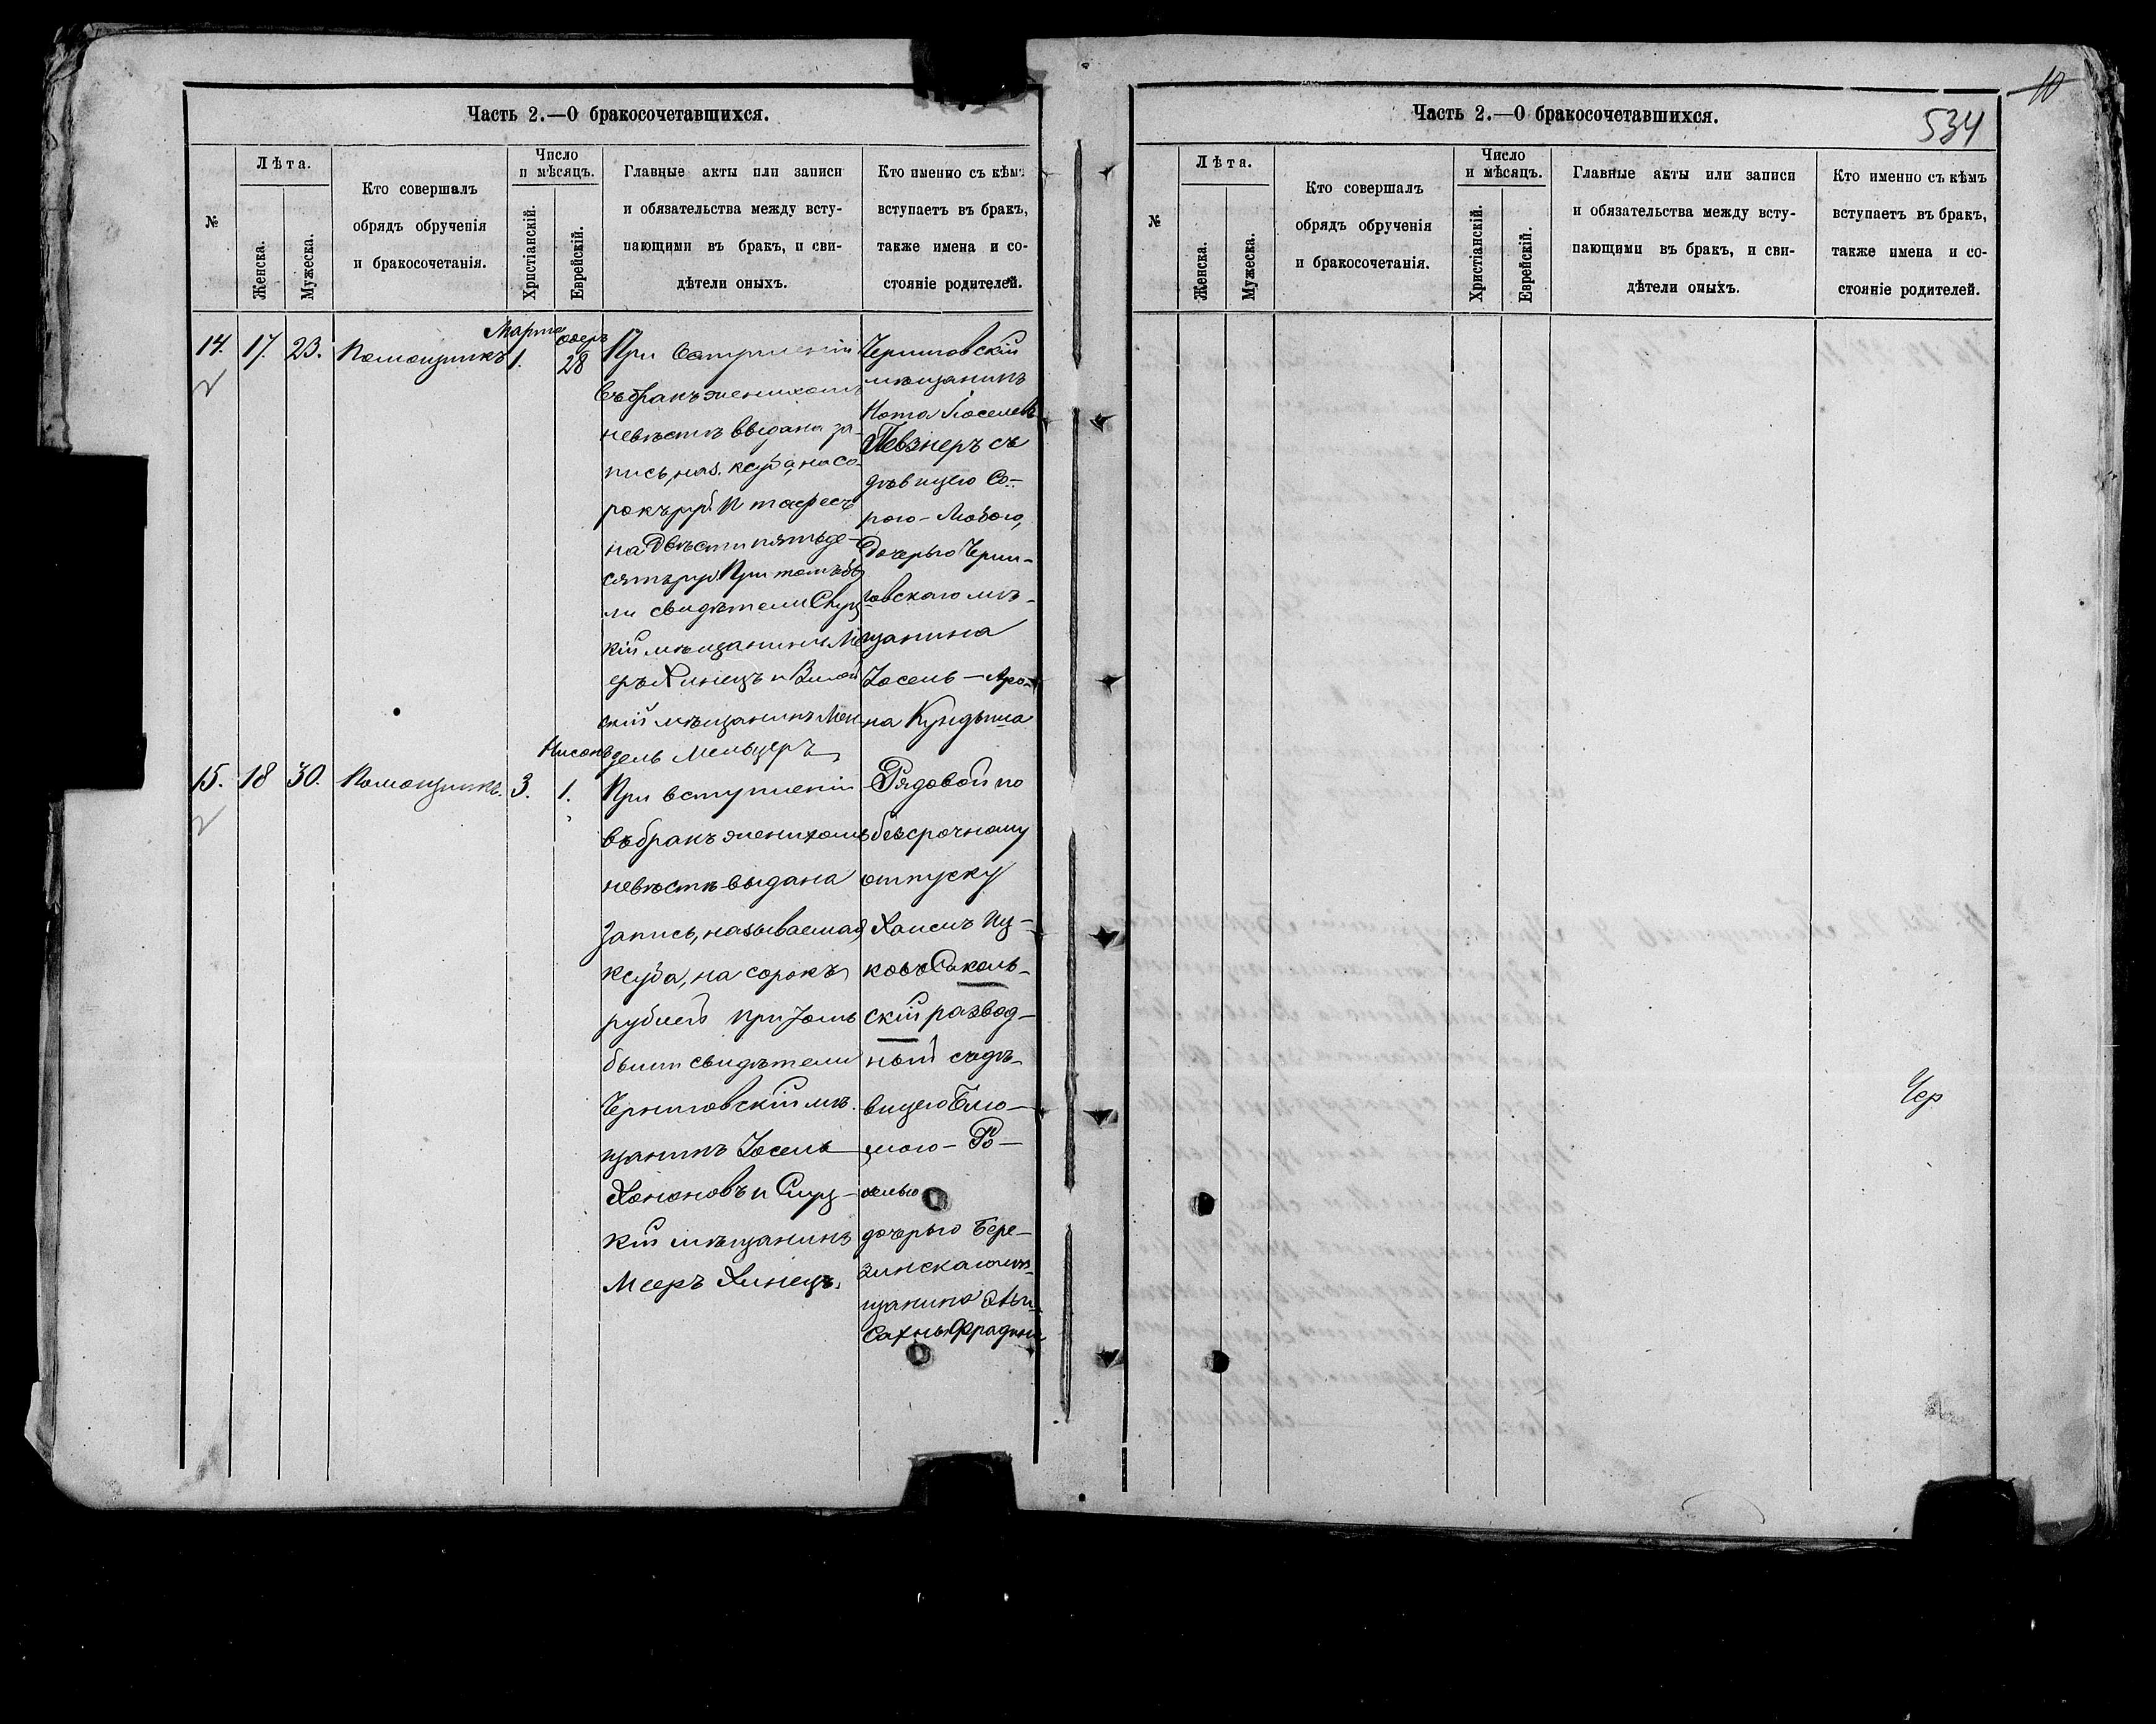 Часть 2.—О бракосочетавшихся.
№
Лѣта.
Женска.
Мужеска.
Кто совершалъ
обрядъ обрученія
и бракосочетанія.
Число
и мѣсяцъ.
Христіанскій.
Еврейскій.
Главные акты или записи
и обязательства между всту-
пающими въ бракъ, и сви-
дѣтели оныхъ.
Кто именно съ кѣмъ
вступаетъ въ бракъ,
также имена и со-
стояніе родителей.
14. 17. 23. Помощникъ
Марта
1.
Одеръ
28
При вступленіи
въ бракъ женихомъ
невѣстѣ выдана за-
пись, наз. ксуба, на со-
рокъ руб. и тосфесъ
на двѣсти пятьде-
сятъ руб. При томъ бы
ли свидѣтели Слуц
кій мѣщанинъ Ме
еръ Хинецъ и
скій мѣщанинъ Мен-
дель Мельцеръ
Черниговскій
мѣщанинъ
Нота Іоселевъ
Певзнеръ съ
дѣвицею Со-
рою-Любою,
дочерью Черни-
говскаго мѣ-
щанина
Іосель-Аро-
на Кундына
15. 18 30. Помощникъ. 3.
Нисонъ
1.
При вступленіи
въ бракъ женихомъ
невѣстѣ выдана
запись, называемая
ксуба, на сорокъ
рублей При томъ
были свидѣтели
Черниговскій мѣ-
щанинъ Іосель
Ханановъ и Слуц-
кій мѣщанинъ
Мееръ Хинецъ.
Рядовой по
безсрочному
отпуску
Хаимъ Иц-
ковъ Саколь-
скій развод-
ный съ дѣ-
вицею Блю-
мою-Ро-
хелью
дочерью Бере-
зинскаго мѣ-
щанина
Сахны Фрадина
10
534
Часть 2.—О бракосочетавшихся.
№
Лѣта.
Женска.
Мужеска.
Кто совершалъ
обрядъ обрученія
и бракосочетанія.
Число
и мѣсяцъ.
Христіанскій.
Еврейскій.
Главные акты или записи
и обязательства между всту-
пающими въ бракъ, и сви-
дѣтели оныхъ.
Кто именно съ кѣмъ
вступаетъ въ бракъ,
также имена и со-
стояніе родителей.
Чер